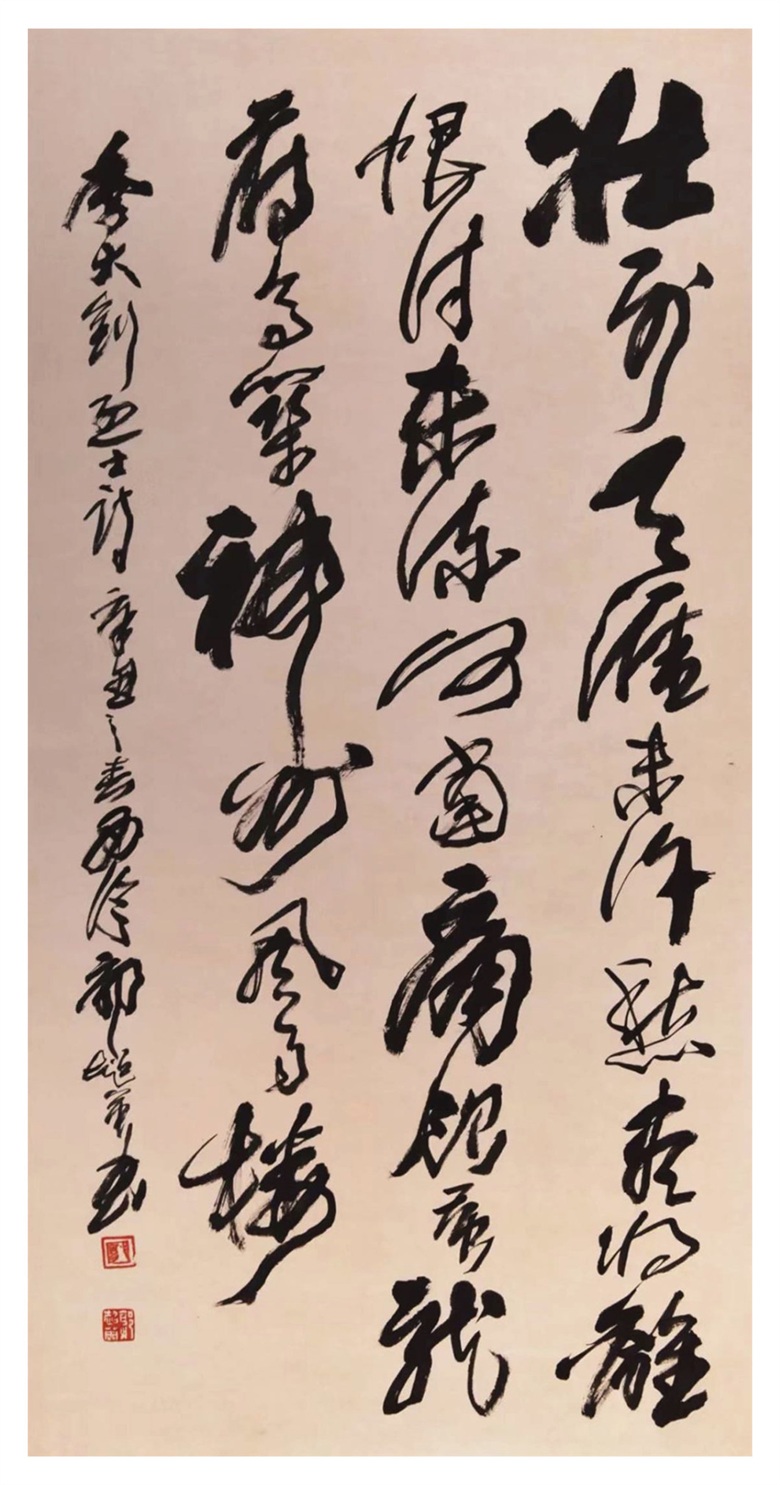 壯別天涯未許愁盡將離
恨付東流何當痛飲黃龍
府高築神州風雨樓
李大釗烈士詩 辛丑之春西泠郭超英書